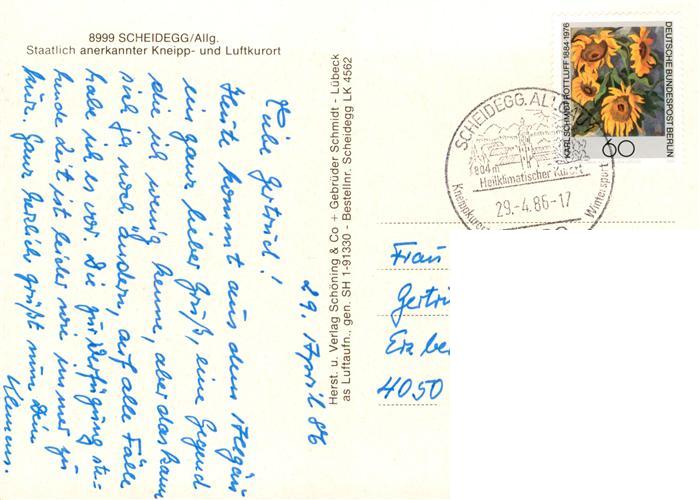 8999 SCHEIDEGG/Allg.
Staatlich anerkannter Kneipp- und Luftkurort
29. April 86
Liebe Gertrud!
Heute kommt aus dem Allgäu
ein ganz lieber Gruß, eine Gegend
die ich wenig kenne, aber das kann
sich ja noch ändern, auf alle Fälle
habe ich es vor. Die zur Verfügung ste=
hende Zeit ist leider wie immer zu
kurz. Ganz herzlich grüßt nun Dein
Klemens.
Herst. u. Verlag Schöning & Co + Gebrüder Schmidt - Lübeck
as Luftaufn., gen. SH 1-91330 - Bestellnr. Scheidegg LK 4562
KARL SCHMIDT-ROTTLUFF 1884-1976
DEUTSCHE BUNDESPOST BERLIN
60
SCHEIDEGG, ALLGÄU
804m
Heilklimatischer Kurort
29.-4.86-17
Kneippkurort
Wintersport
Frau
Gertr
Erzbe
4050